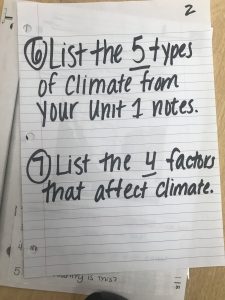 2
⑥ List the 5 types
of climate from
your Unit 1 notes.
⑦ List the 4 factors
that affect climate.
1
4
5
is Trust?